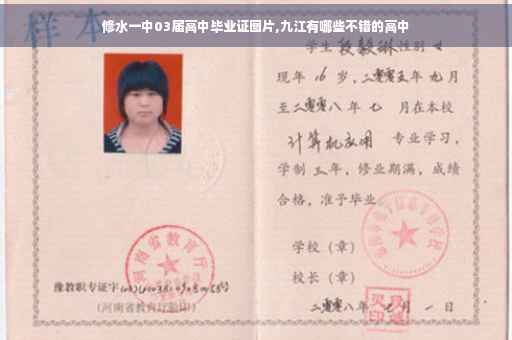 修水一中03届高中毕业证图片,九江有哪些不错的高中
样本
学生段毅琳性别女
现年16岁，二零零五年九月
至二零零八年七月在本校
计算机应用 专业学习，
学制三年，修业期满，成绩
合格，准予毕业
学校（章）
校长（章）
二零零八年七月一日
河南省教育厅
豫教职专证字
（河南省教育厅验印）